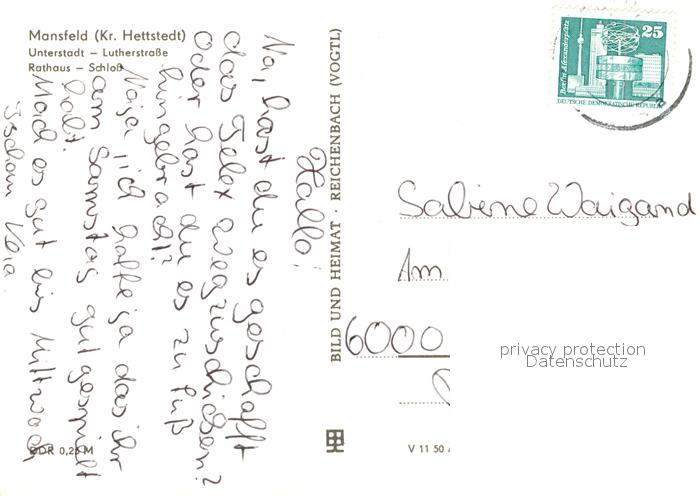 Mansfeld (Kr. Hettstedt)
Unterstadt – Lutherstraße
Rathaus – Schloß
Hallo!
Na, hast du es geschafft
das Telex wegzuschicken?
Oder hast du es zu Fuß
hingebracht?
Naja, ich hoffe ja das ihr
am Samstag gut gespielt
habt.
Mach es gut bis Mittwoch
Tschau
DDR 0,25 M
BILD UND HEIMAT · REICHENBACH (VOGTL)
25
Berlin, Alexanderplatz
DEUTSCHE DEMOKRATISCHE REPUBLIK
Sabine Waigand
Am
6000
privacy protection
Datenschutz
V 11 50